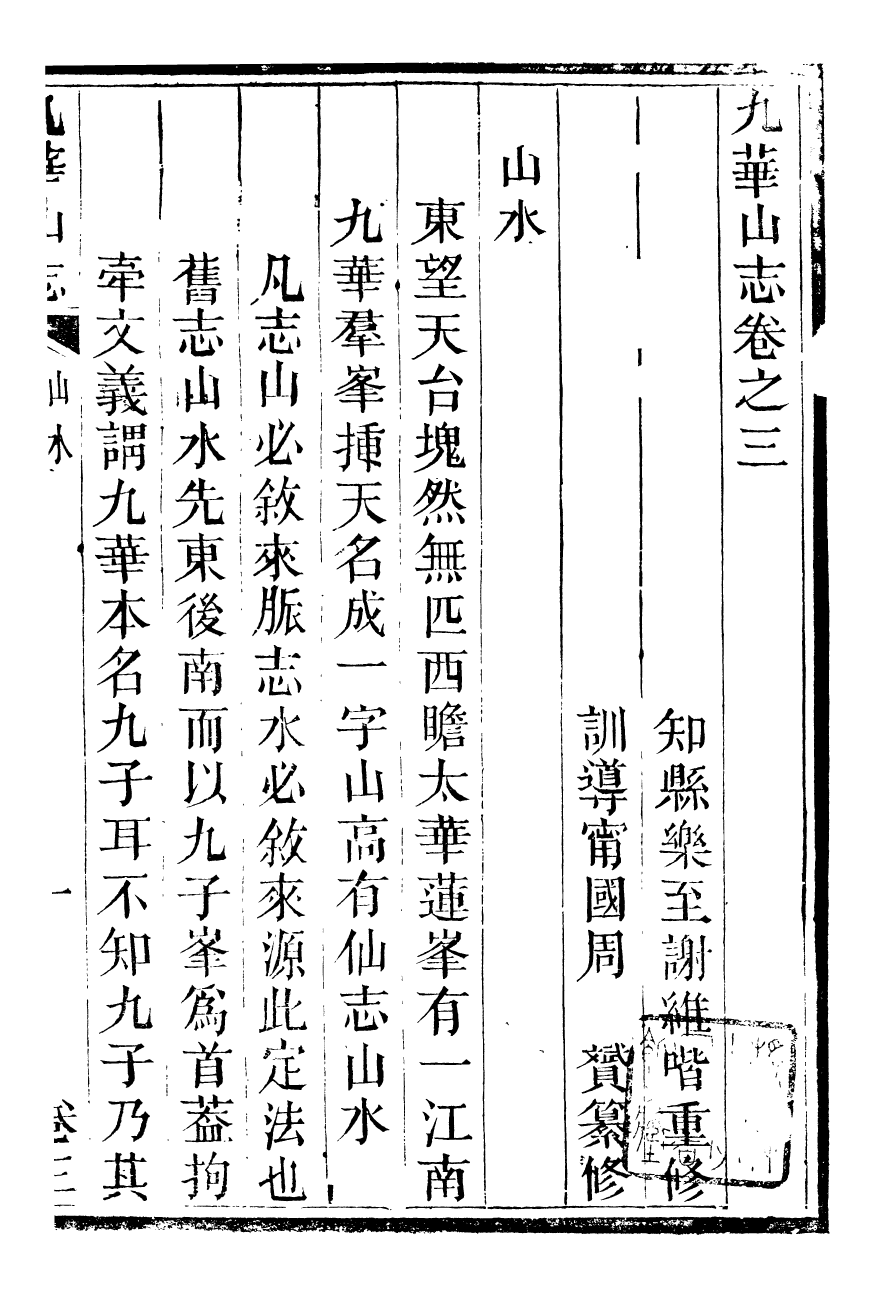 九華山志卷之三
知縣樂至謝維喈重修
訓導甯國周　贇纂修
山水
東望天台塊然無匹西瞻太華蓮峯有一江南
九華羣峯揷天名成一字山高有仙志山水
凡志山必敘來脈志水必敘來源此定法也
舊志山水先東後南而以九子峯爲首葢拘
牽文義謂九華本名九子耳不知九子乃其
九華山志　山水　一　卷三